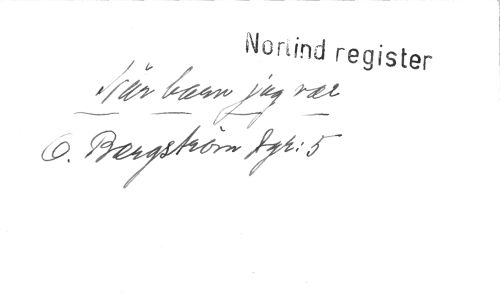 Norlind register
När barn jag var
O. Bergström Dgr: 5